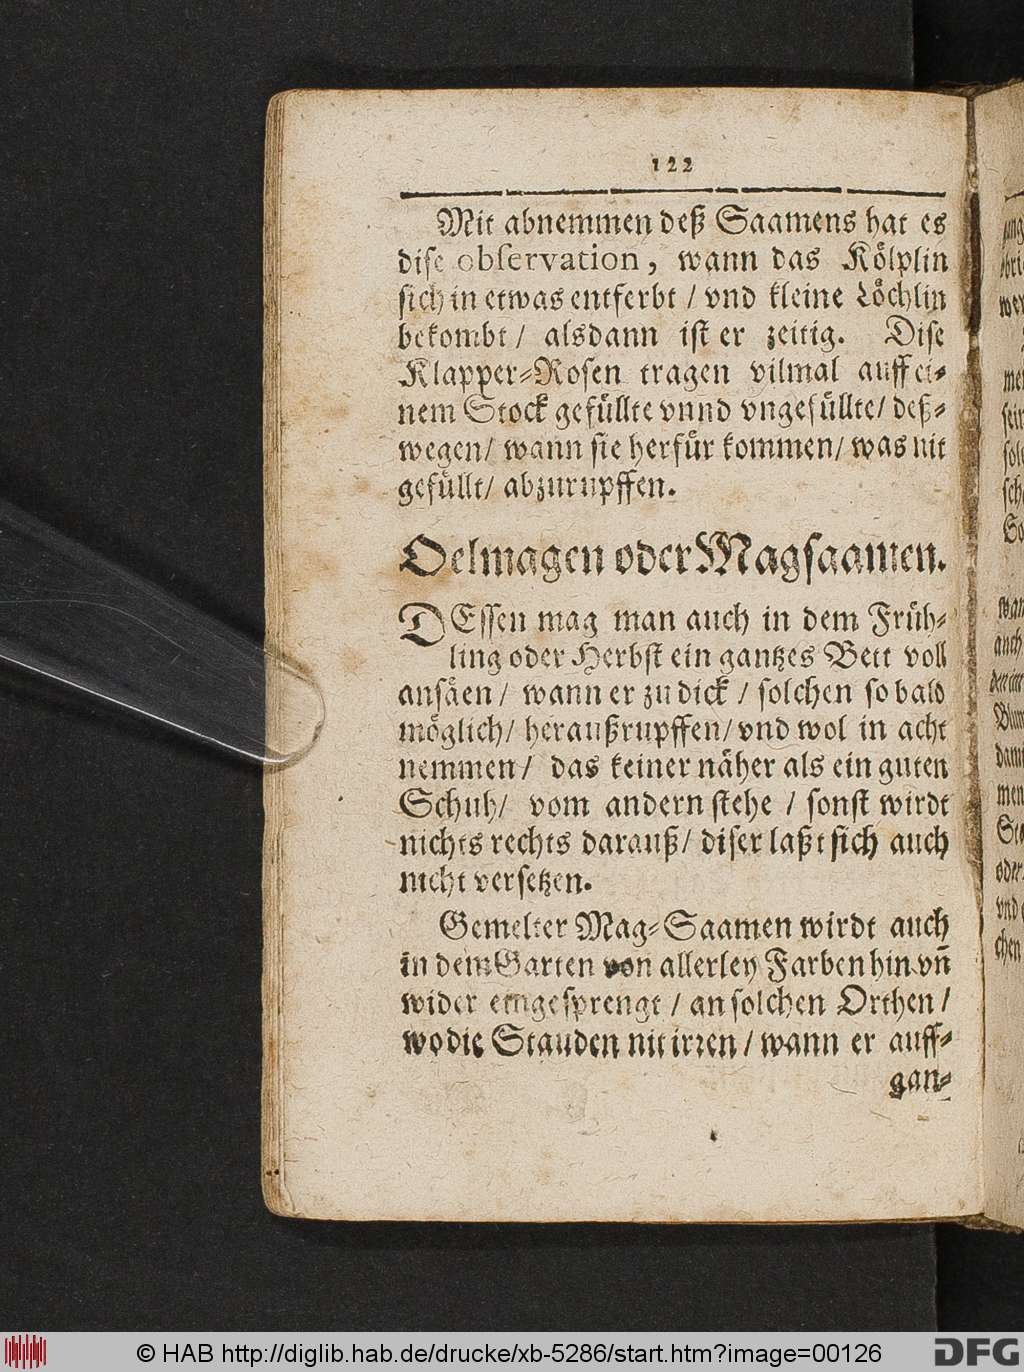 122
Mit abnemmen deß Saamens hat es
dise observation, wann das Kölplin
sich in etwas entferbt / vnd kleine Löchlin
bekombt / alsdann ist er zeitig. Dise
Klapper-Rosen tragen vilmal auff ei-
nem Stock gefüllte vnnd vngefüllte / deß-
wegen / wann sie herfür kommen / was nit
gefüllt / abzurupffen.
Oelmagen oder Magsaamen.
DEssen mag man auch in dem Früh-
ling oder Herbst ein gantzes Bett voll
ansäen / wann er zu dick / solchen so bald
möglich / heraußrupffen / vnd wol in acht
nemmen / das keiner näher als ein guten
Schuh / vom andern stehe / sonst wirdt
nichts rechts darauß / diser laßt sich auch
nicht versetzen.
Gemelter Mag-Saamen wirdt auch
in dem Garten von allerley Farben hin vn̄
wider eingesprengt / an solchen Orthen /
wo die Stauden nit irren / wann er auff-
gan-
© HAB http://diglib.hab.de/drucke/xb-5286/start.htm?image=00126
DFG